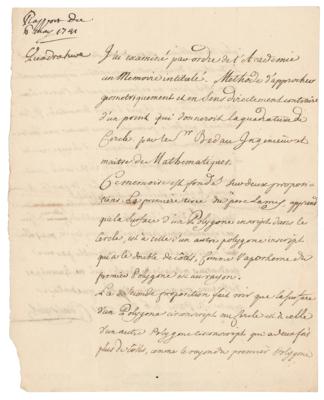 Rapport du
6 May 1741
Quadrature
J'ai examiné par ordre de l'Academie
un Memoire intitulé, Methode d'approcher
geometriquement et en Sens directement contraire
d'un point qui donneroit la quadrature du
Cercle, par le Sr Bedau Ingenieur et
maitre de Mathematiques.
Ce memoire est fondé sur deux proposi-
tions. La premiere tirée du pere Lamy apprend
que la Surface d'un Polygone inscript dans le
Cercle, est à celle d'un autre polygone inscript
qui a le double de côtés, comme l'apotheme du
premier Polygone au rayon.
La seconde proposition fait voir que la surface
d'un Polygone circonscript au Cercle est à celle
d'un autre Polygone circonscript qui a deux fois
plus de côtés, comme le rayon du premier Polygone